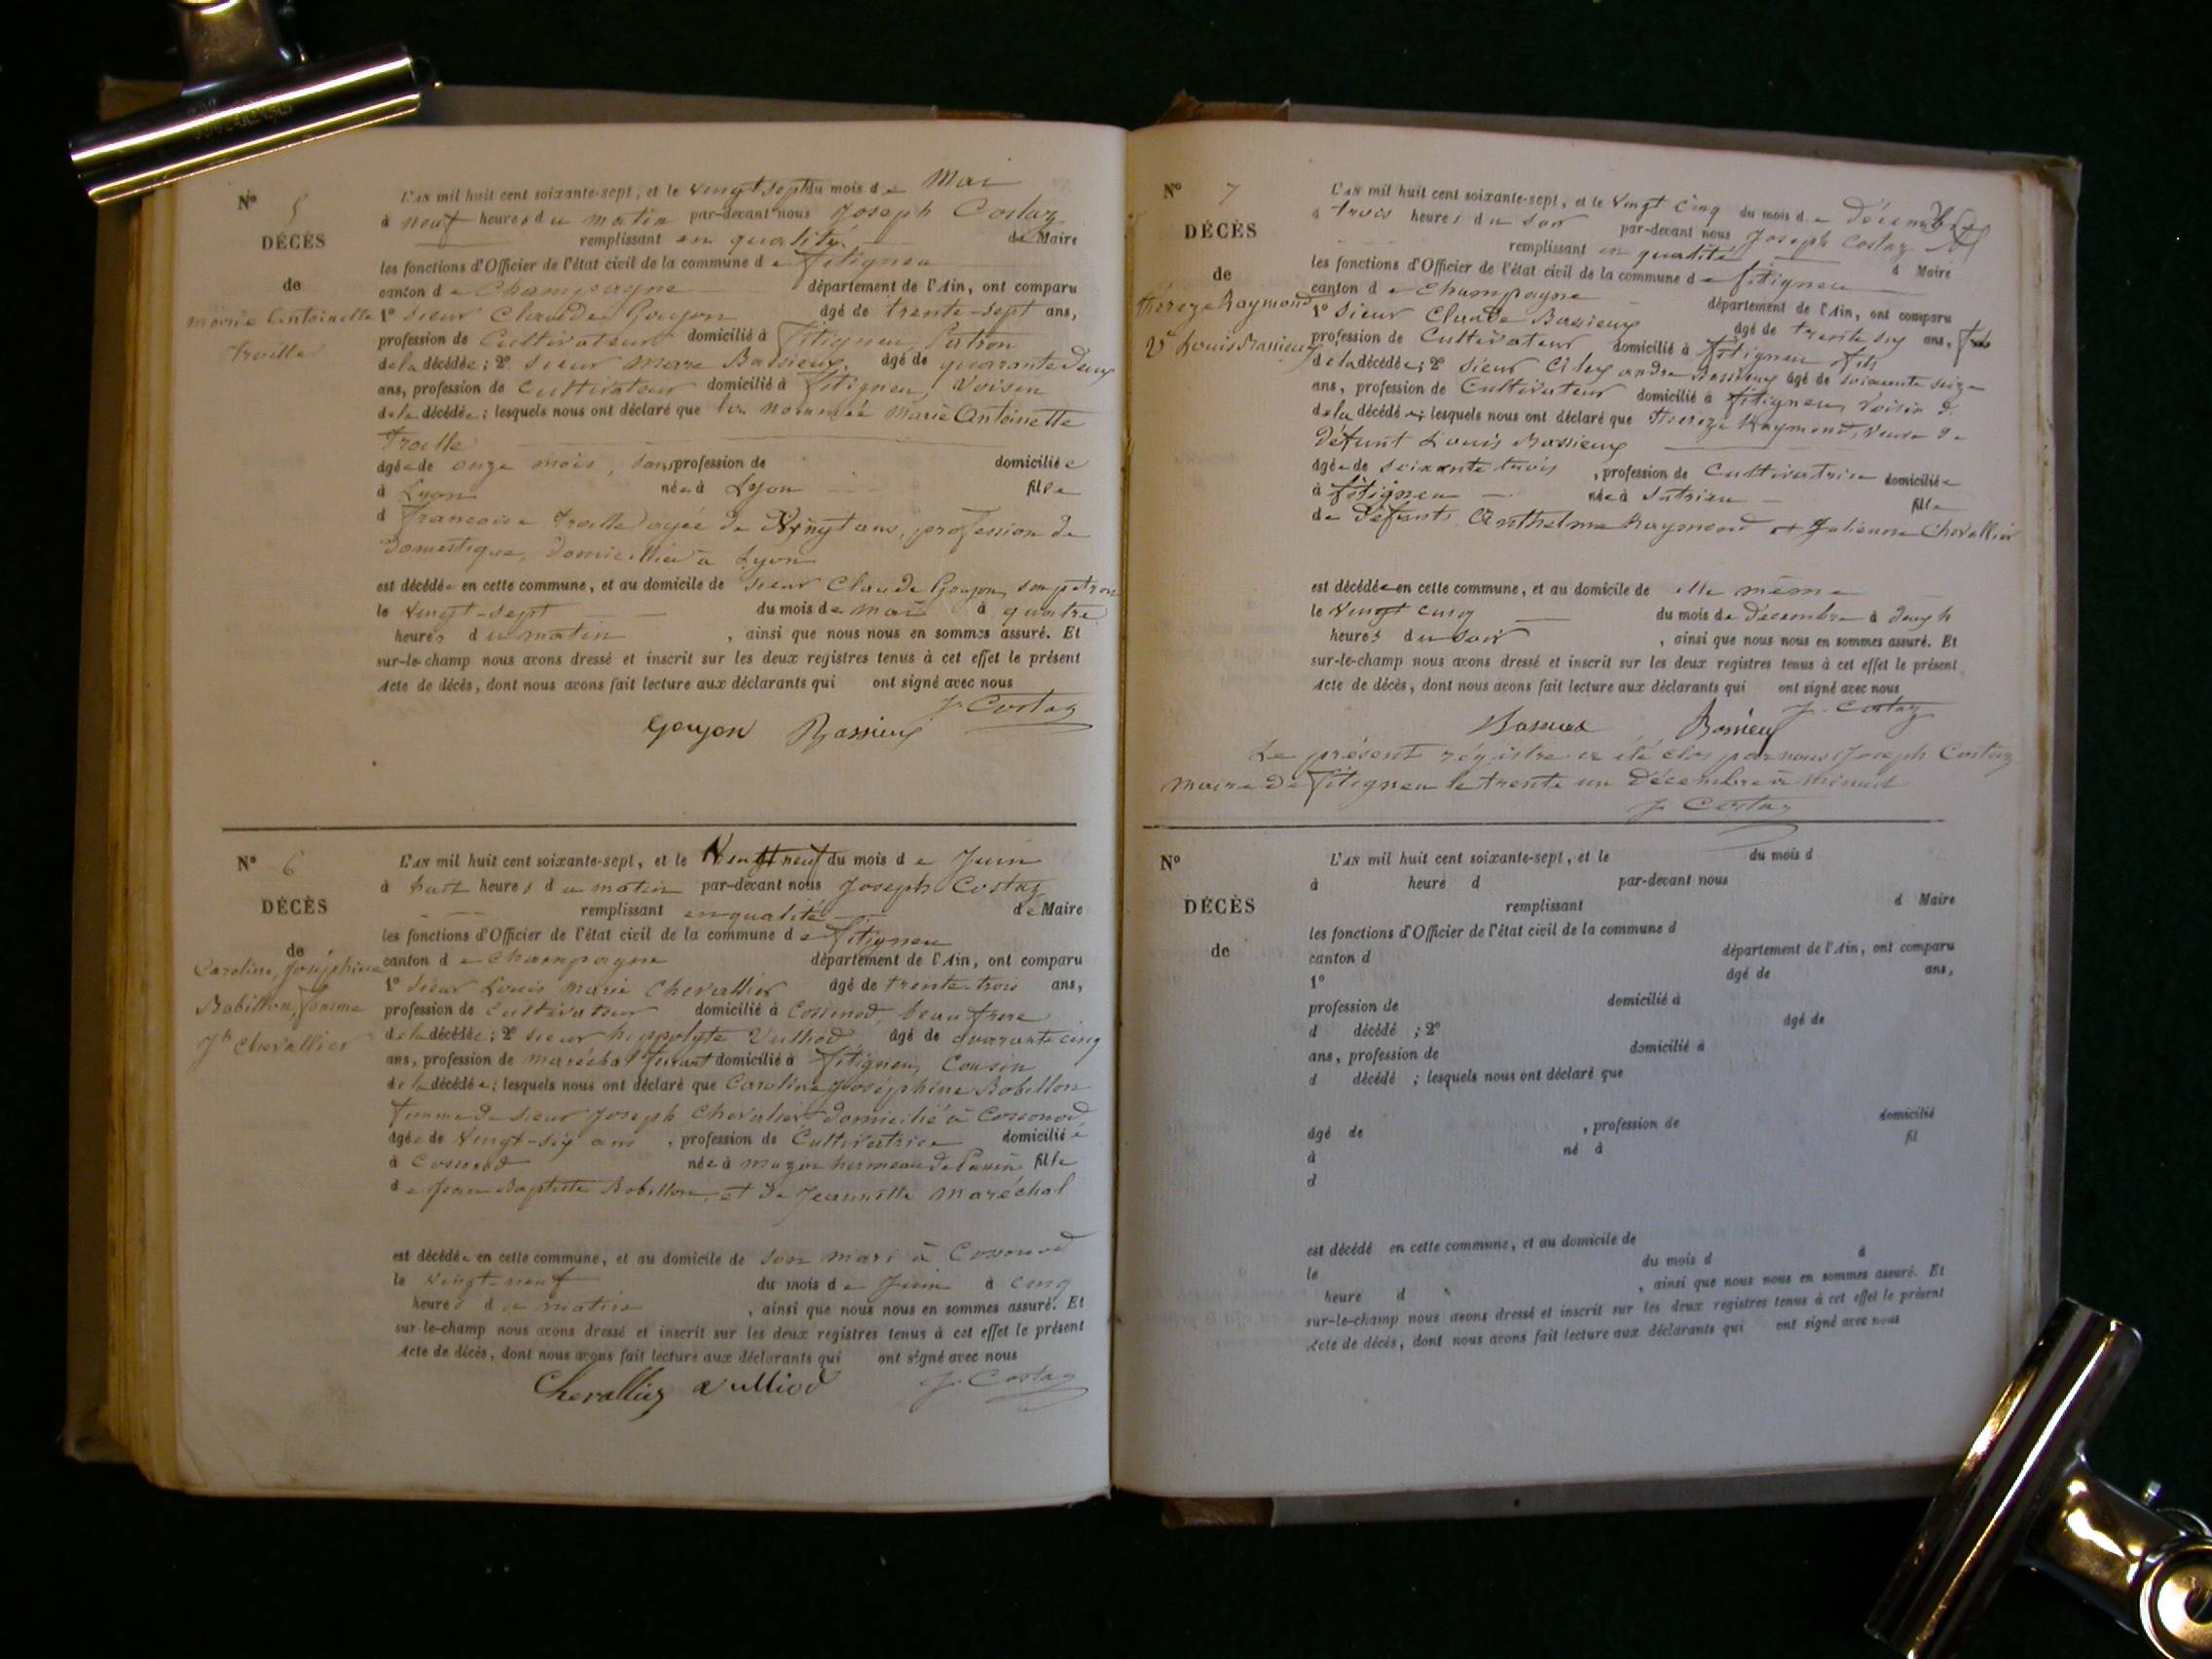 N° 5
DÉCÈS
de
Marie Antoinette
Troille
L'AN mil huit cent soixante-sept, et le vingt sept du mois de Mai
à neuf heures du matin par-devant nous Joseph Costaz
remplissant en qualité de Maire
les fonctions d'Officier de l'état civil de la commune de fitigneu
canton de Champagne département de l'Ain, ont comparu
1° Sieur Claude Goujon âgé de trente-sept ans,
profession de Cultivateur domicilié à fitigneu, Patron
de la décédée ; 2° sieur Marc Bassieux, âgé de quarante deux
ans, profession de Cultivateur domicilié à fitigneu, Voisin
de la décédée ; lesquels nous ont déclaré que la nommée Marie Antoinette
Troille
âgée de onze mois, sans profession de domiciliée
à Lyon née à Lyon fille
d françoise Troille agée de Vingt ans, profession de
Domestique, domiciliée à Lyon
est décédée en cette commune, et au domicile de sieur Claude Goujon, son patron
le vingt-sept du mois de mai à quatre
heures du matin , ainsi que nous nous en sommes assuré. Et
sur-le-champ nous avons dressé et inscrit sur les deux registres tenus à cet effet le présent
Acte de décès, dont nous avons fait lecture aux déclarants qui ont signé avec nous
J. Costaz
Goujon Bassieux
N° 6
DÉCÈS
de
Caroline, Joséphine
Robillon, femme
Jh Chevallier
L'AN mil huit cent soixante-sept, et le Vingt neuf du mois de Juin
à huit heures du matin par-devant nous Joseph Costaz
remplissant en qualité de Maire
les fonctions d'Officier de l'état civil de la commune de fitigneu
canton de Champagne département de l'Ain, ont comparu
1° Sieur Louis Marie Chevallier âgé de trente-trois ans,
profession de Cultivateur domicilié à Cossonod, beau frere
de la décédée ; 2° sieur hyppolyte Vulliod âgé de quarante cinq
ans, profession de maréchal ferrant domicilié à fitigneu, Cousin
de la décédée ; lesquels nous ont déclaré que Caroline Joséphine Robillon
femme de sieur Joseph Chevalier domicilié à Cossonod
âgée de Vingt-six ans , profession de Cultivatrice domiciliée
à Cossonod née à fille
de Jean Baptiste Robillon, et de Jeannette Maréchal
est décédée en cette commune, et au domicile de son mari à Cossonod
le vingt-neuf du mois de Juin à cinq
heures du matin , ainsi que nous nous en sommes assuré. Et
sur-le-champ nous avons dressé et inscrit sur les deux registres tenus à cet effet le présent
Acte de décès, dont nous avons fait lecture aux déclarants qui ont signé avec nous
Chevallier Vulliod J. Costaz
N° 7
DÉCÈS
de
théreze Raymond
Ve Louis Bassieux
L'AN mil huit cent soixante-sept, et le Vingt cinq du mois de Décembre
à trois heures du soir par-devant nous Joseph Costaz
remplissant en qualité d Maire
les fonctions d'Officier de l'état civil de la commune de fitigneu
canton de Champagne département de l'Ain, ont comparu
1° Sieur Claude Bassieux âgé de trente six ans,
profession de Cultivateur domicilié à fitigneu fils
de la décédée ; 2° sieur andré Bassieux âgé de soixante seize
ans, profession de Cultivateur domicilié à fitigneu, Voisin d
de la décédée ; lesquels nous ont déclaré que théreze Raymond, veuve de
défunt Louis Bassieux
âgée de soixante trois , profession de Cultivatrice domiciliée
à fitigneu née à Sutrieu fille
de défunts Anthelme Raymond et Julienne Chevallier
est décédée en cette commune, et au domicile de elle même
le Vingt cinq du mois de Décembre à deux h
heures du soir , ainsi que nous nous en sommes assuré. Et
sur-le-champ nous avons dressé et inscrit sur les deux registres tenus à cet effet le présent
Acte de décès, dont nous avons fait lecture aux déclarants qui ont signé avec nous
J. Costaz
Bassieux Bassieux
Le présent régistre a été clos par nous Joseph Costaz
maire de fitigneu le trente un Décembre à minuit
J. Costaz
N°
DÉCÈS
de
L'AN mil huit cent soixante-sept, et le du mois d
à heure d par-devant nous
remplissant d Maire
les fonctions d'Officier de l'état civil de la commune d
canton d département de l'Ain, ont comparu
1° âgé de ans,
profession de domicilié à
d décédé ; 2° âgé de
ans, profession de domicilié à
d décédé ; lesquels nous ont déclaré que
âgé de , profession de domicilié
à né à fil
d
est décédé en cette commune, et au domicile de
le du mois d à
heure d , ainsi que nous nous en sommes assuré. Et
sur-le-champ nous avons dressé et inscrit sur les deux registres tenus à cet effet le présent
Acte de décès, dont nous avons fait lecture aux déclarants qui ont signé avec nous